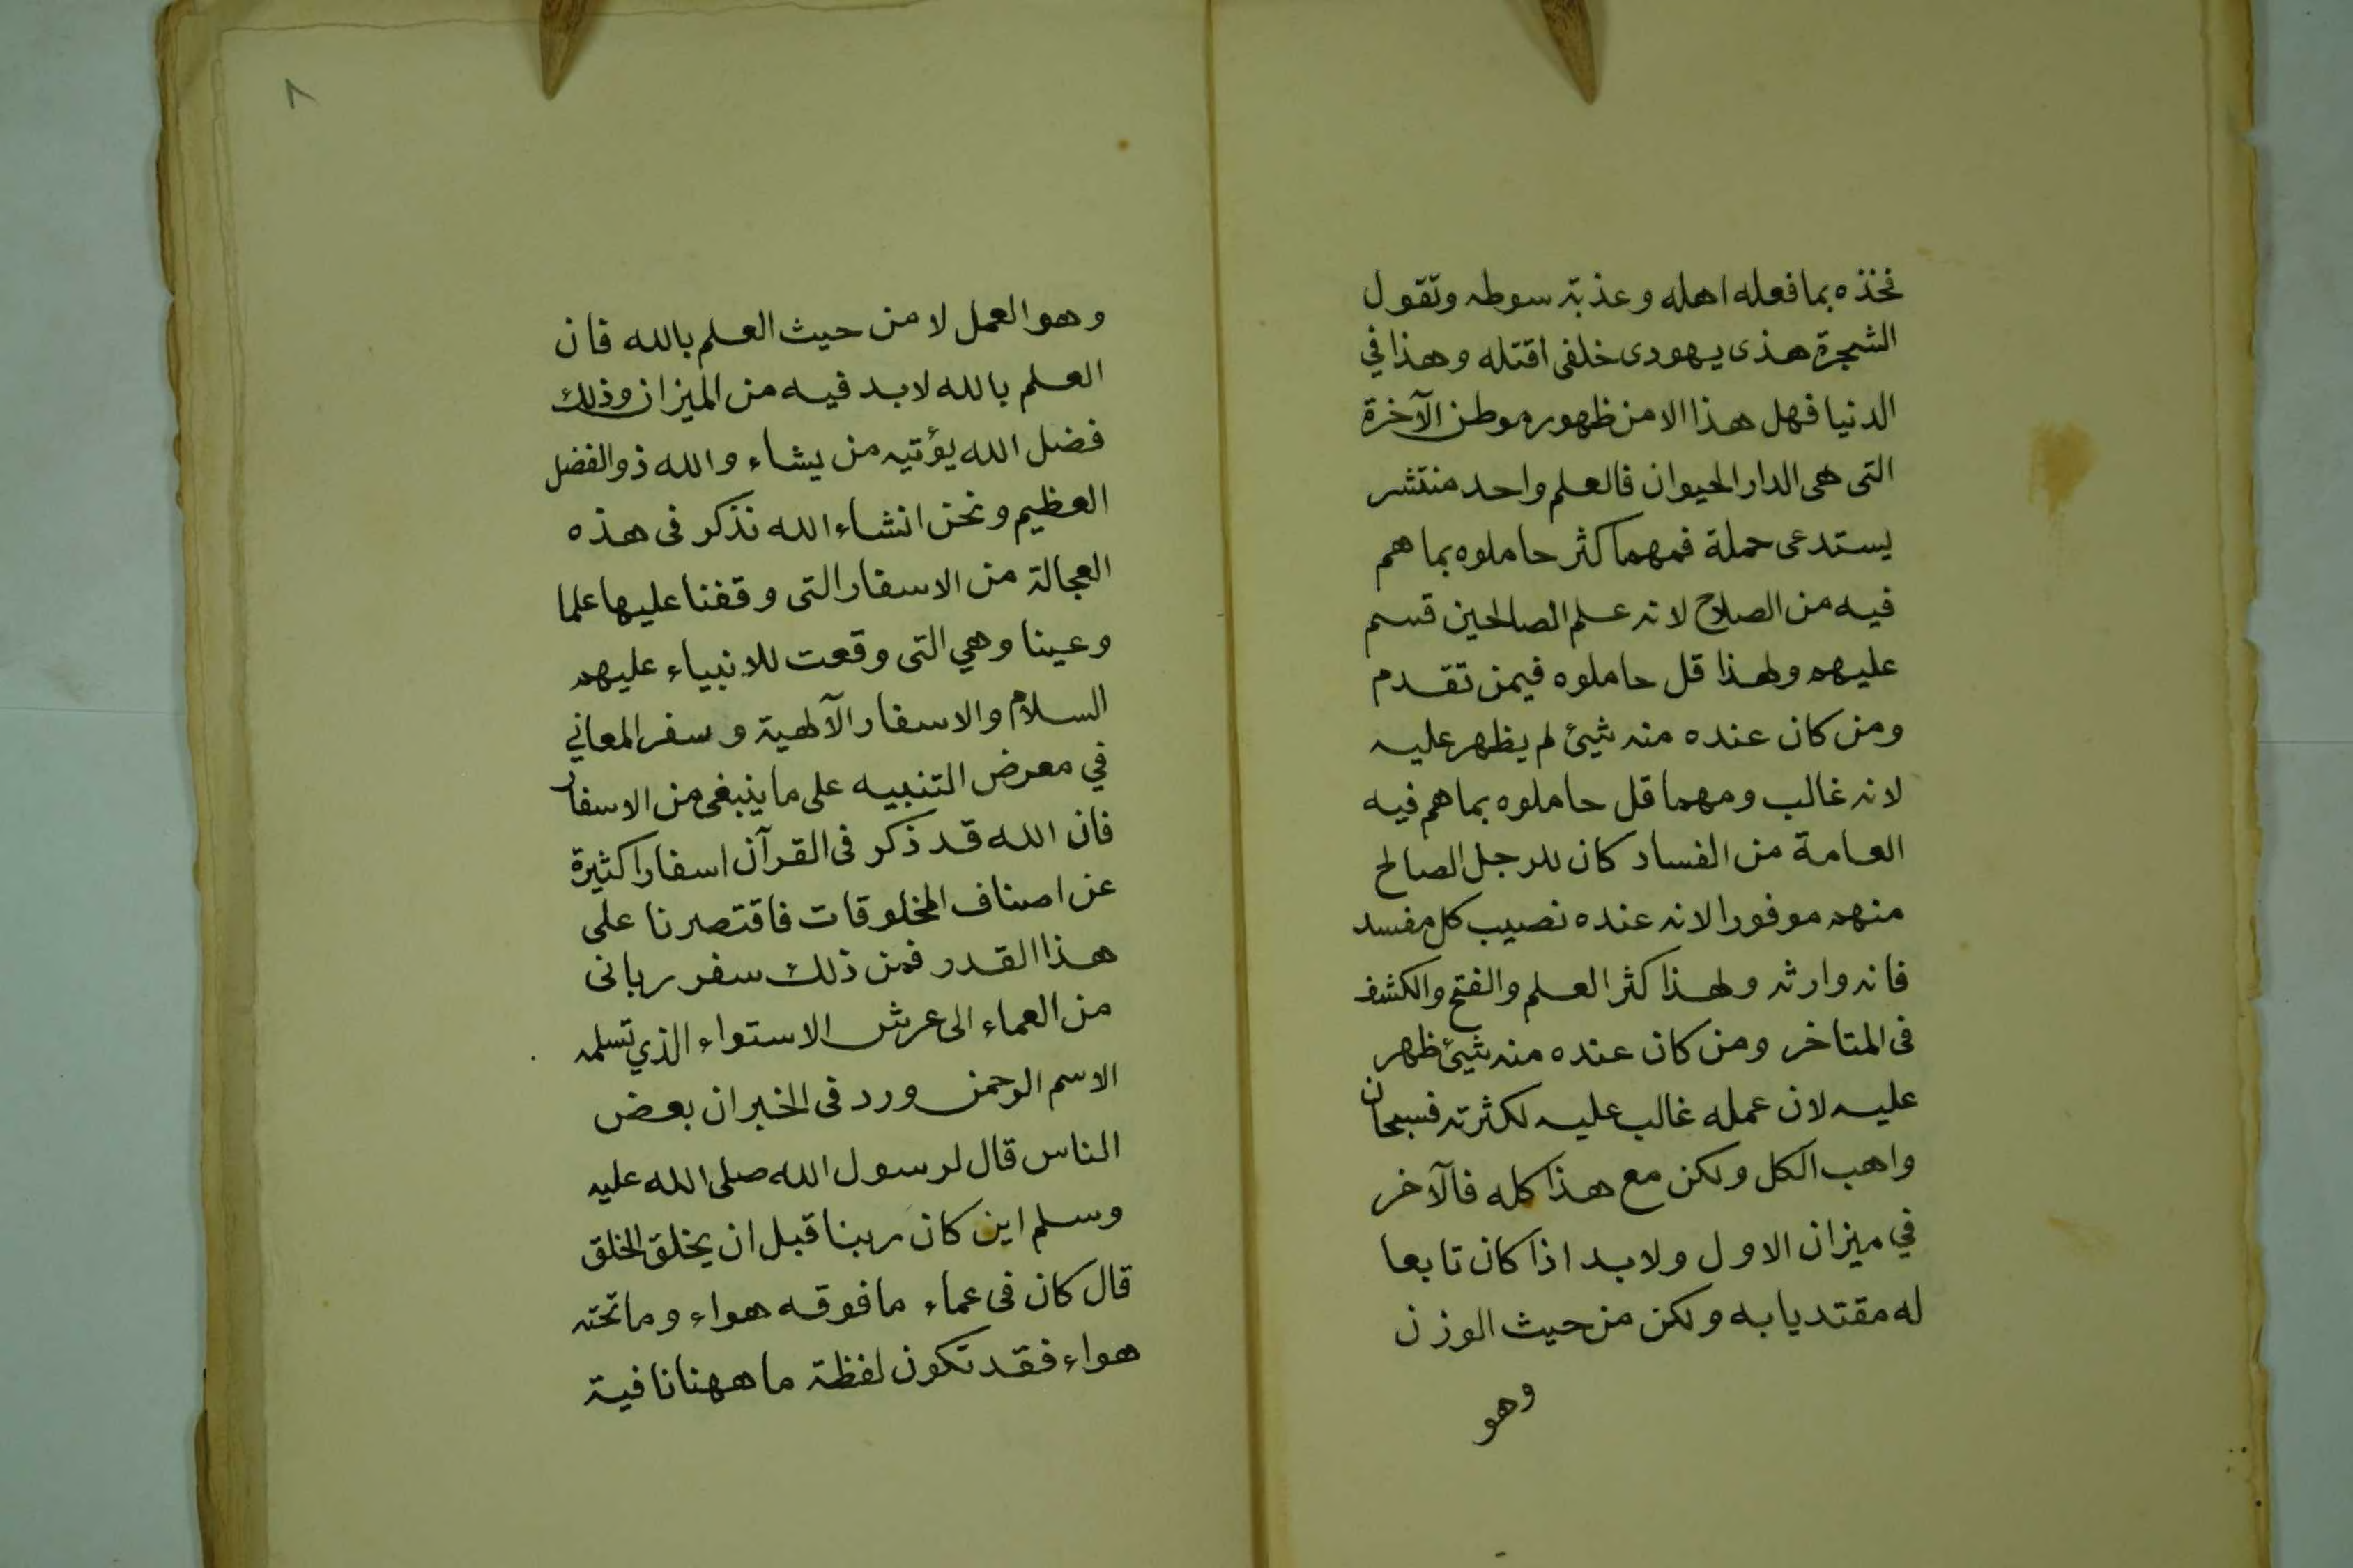 فخذه بما فعله اهله وعذبة سوطه وتقول
الشجرة هذى يهودى خلفى اقتله وهذا في
الدنيا فهل هذا الا من ظهوره موطن الآخرة
التى هى الدار الحيوان فالعلم واحد منتشر
يستدعى حملة فمهما كثر حاملوه بما هم
فيه من الصلاح لانه علم الصالحين قسم
عليهم ولهذا قل حاملوه فيمن تقدم
ومن كان عنده منه شيئ لم يظهر عليه
لانه غالب ومهما قل حاملوه بما هم فيه
العامة من الفساد كان للرجل الصالح
منهم موفورا لانه عنده نصيب كل مفسد
فانه وارثه ولهذا كثر العلم والفتح والكشف
فى المتاخر ومن كان عنده منه شيئ ظهر
عليه لان عمله غالب عليه لكثرته فسبحان
واهب الكل ولكن مع هذا كله فالآخر
في ميزان الاول ولابد اذا كان تابعا
له مقتديا به ولكن من حيث الوزن
وهو
٨
وهو العمل لا من حيث العلم بالله فان
العلم بالله لابد فيه من الميزان وذلك
فضل الله يؤتيه من يشاء والله ذو الفضل
العظيم ونحن انشاء الله نذكر فى هذه
العجالة من الاسفار التى وقفنا عليها علما
وعينا وهي التى وقعت للانبياء عليهم
السلام والاسفار الآلهية وسفر المعاني
في معرض التنبيه على ما ينبغى من الاسفار
فان الله قد ذكر فى القرآن اسفارا كثيرة
عن اصناف المخلوقات فاقتصرنا على
هذا القدر فمن ذلك سفر ربانى
من العماء الى عرش الاستواء الذي تسلمه
الاسم الرحمن ورد فى الخبر ان بعض
الناس قال لرسول الله صلى الله عليه
وسلم اين كان ربنا قبل ان يخلق الخلق
قال كان فى عماء ما فوقه هواء وما تحته
هواء فقد تكون لفظة ما ههنا نافية